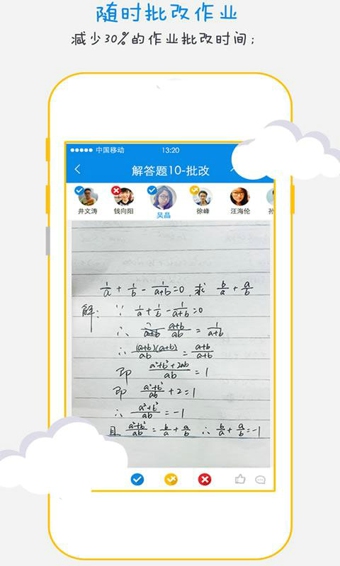 随时批改作业
减少30%的作业批改时间；
中国移动 13:20
解答题10-批改
井文涛 钱向阳 吴晶 徐峰 汪海伦 孙
1/a + 1/b - 1/(a+b) = 0 求 b/a + a/b
解: ∵ 1/a + 1/b - 1/(a+b) = 0
∴ (a+b)/ab = 1/(a+b)
∴ (a+b)(a+b)/ab = (a+b)/(a+b)
即 (a²+b²+2ab)/ab = 1
即 (a²+b²)/ab + 2 = 1
∴ (a²+b²)/ab = -1
且 (a²+b²)/ab = b/a + a/b ∴ b/a + a/b = -1